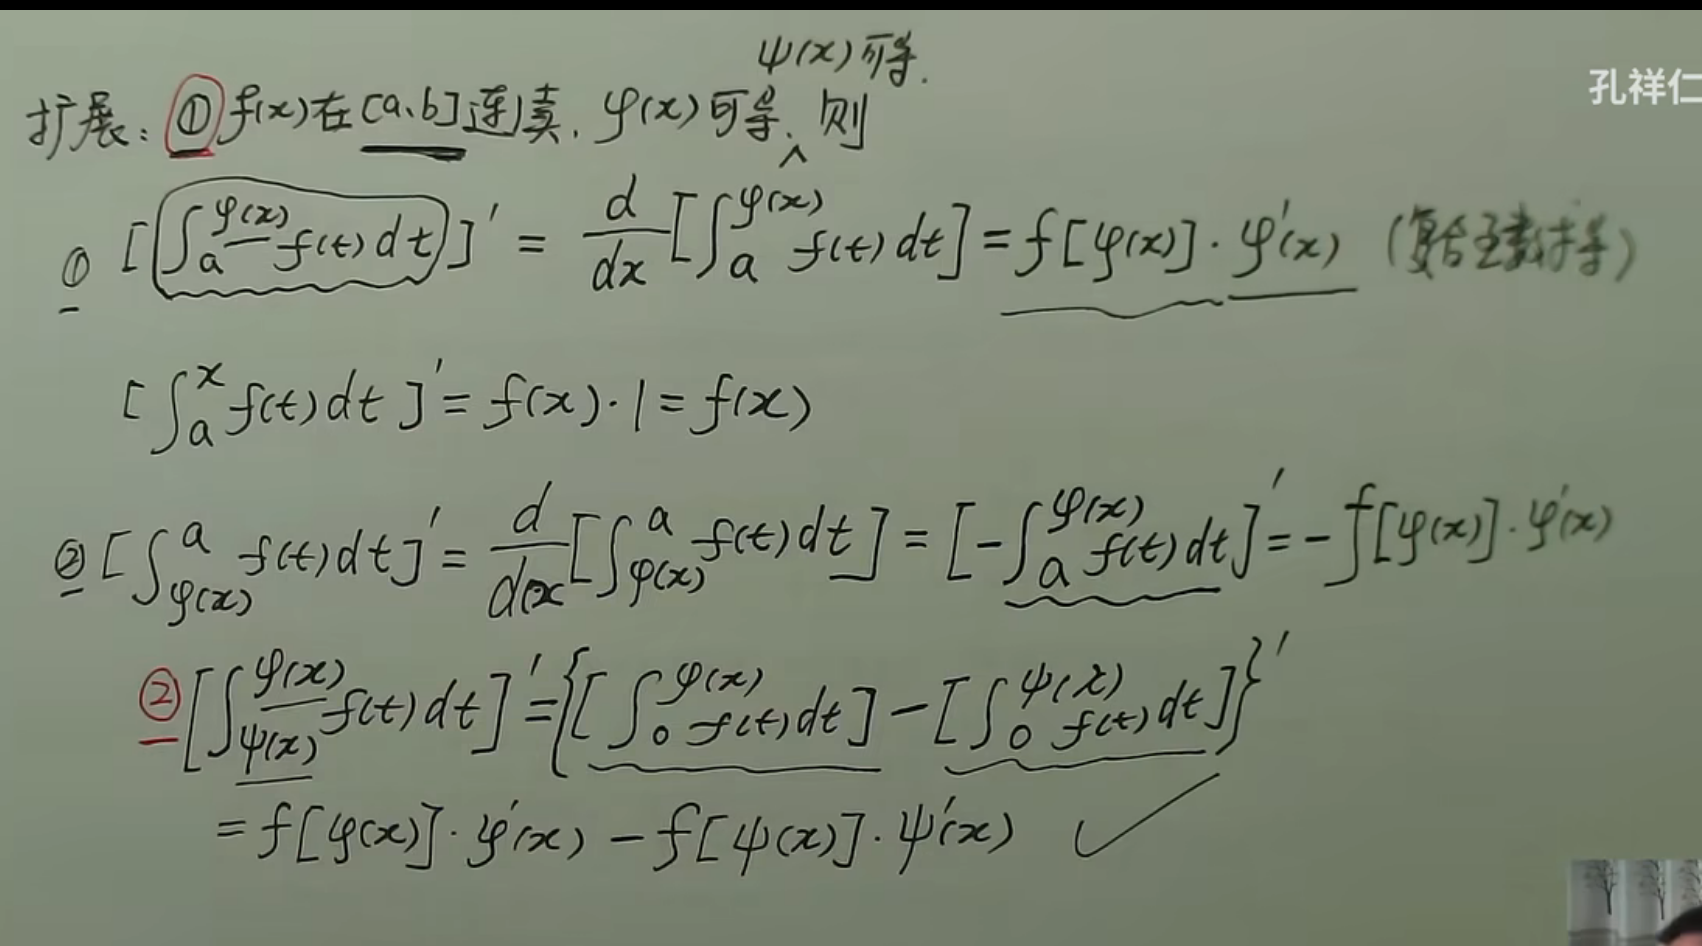 ψ(x)可导.
孔祥仁
扩展: ① f(x)在[a、b]连续, φ(x)可导、则
① [∫_a^{φ(x)} f(t)dt]' = d/dx [∫_a^{φ(x)} f(t)dt] = f[φ(x)]·φ'(x) (复合函数求导)
[∫_a^x f(t)dt]' = f(x)·1 = f(x)
② [∫_{φ(x)}^a f(t)dt]' = d/dx [∫_{φ(x)}^a f(t)dt] = [-∫_a^{φ(x)} f(t)dt]' = -f[φ(x)]·φ'(x)
② [∫_{ψ(x)}^{φ(x)} f(t)dt]' = {[∫_0^{φ(x)} f(t)dt] - [∫_0^{ψ(x)} f(t)dt]}'
= f[φ(x)]·φ'(x) - f[ψ(x)]·ψ'(x) ✓